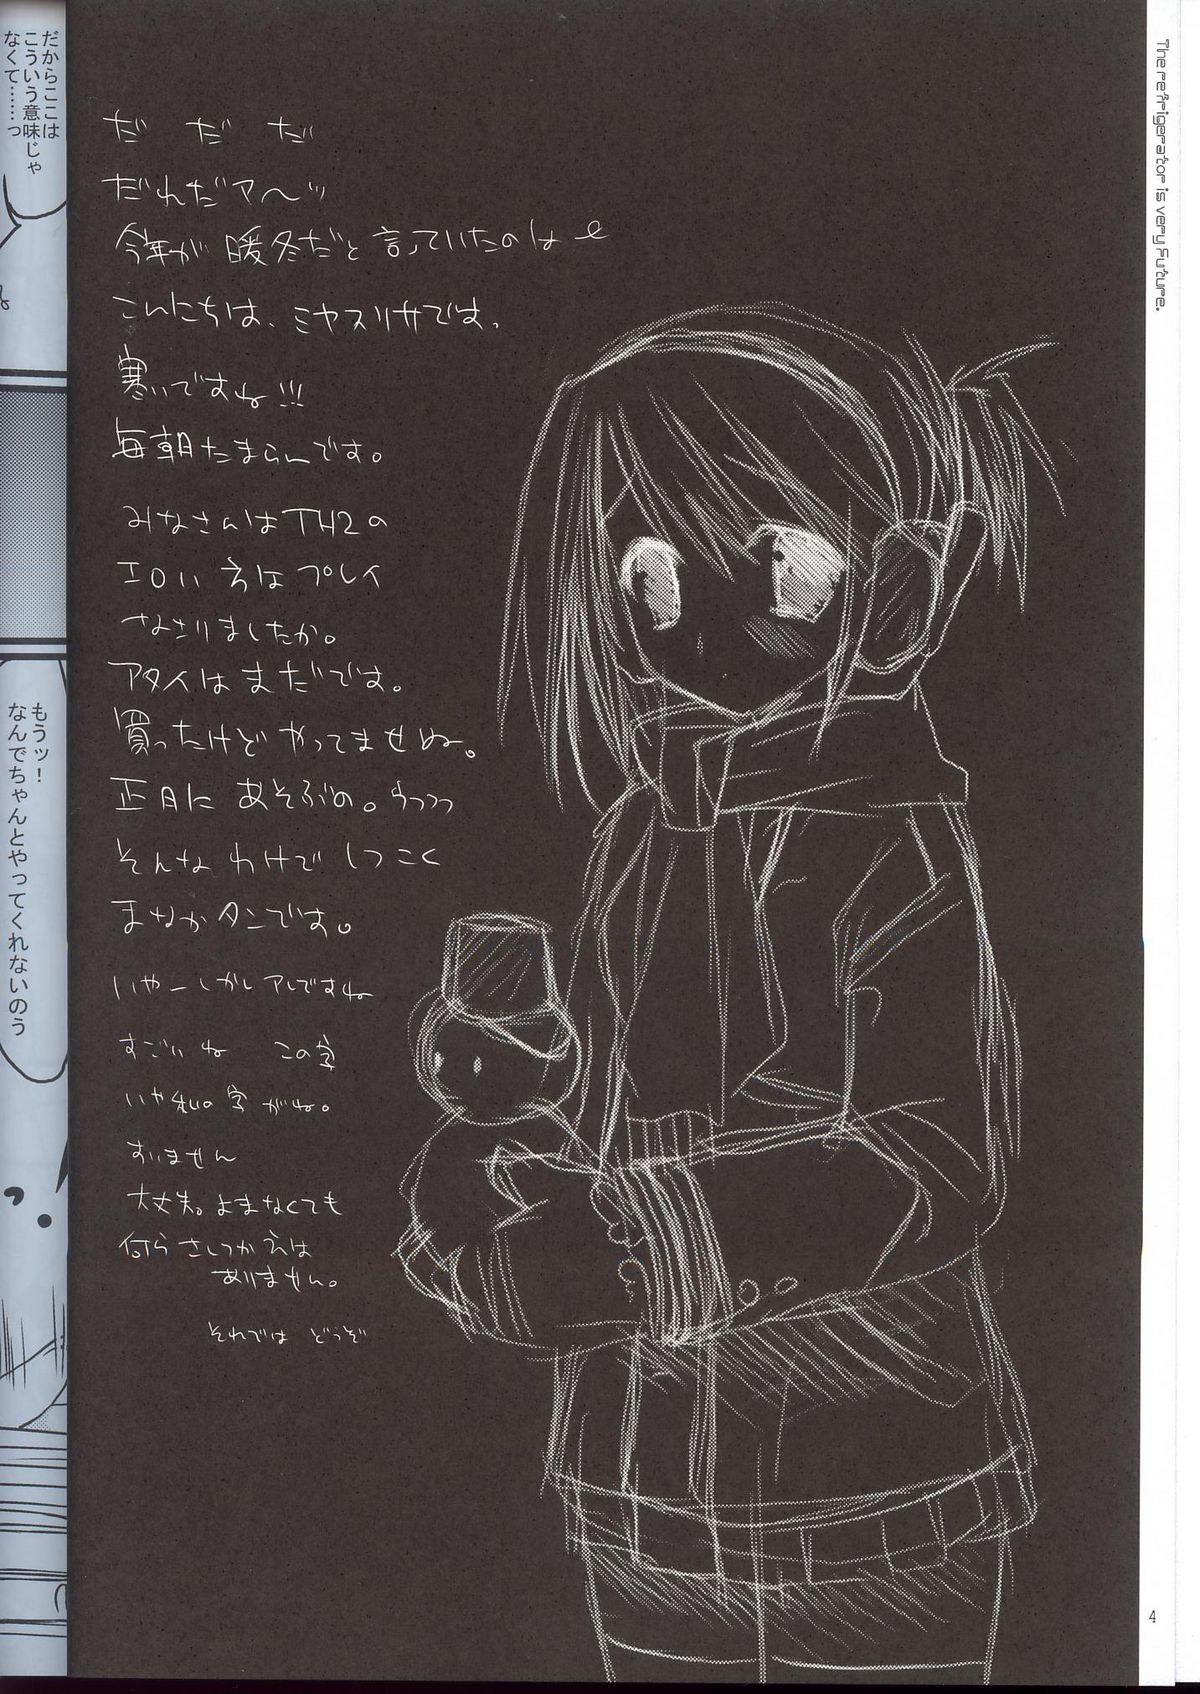 The refrigerator is very Future.
だ だ だ
だれだァ～ッ
今年が暖冬だと言っていたのはe
こんにちは、ミヤスリサです。
寒いですね!!!
毎朝たまらんです。
みなさんはTH2の
エロい方はプレイ
なさりましたか。
アタイはまだです。
買ったけどやってませぬ。
正月にあそぶの。うつつつ
そんなわけでしつこく
まなかタンです。
いやーしかしアレですね
すごいね この字
いや私の字がね。
すいません
大丈夫。よまなくても
何らさしつかえは
ありません。
それでは どうぞ
だからここは
こういう意味じゃ
なくて……っ
もうッ!
なんでちゃんとやってくれないのう
4